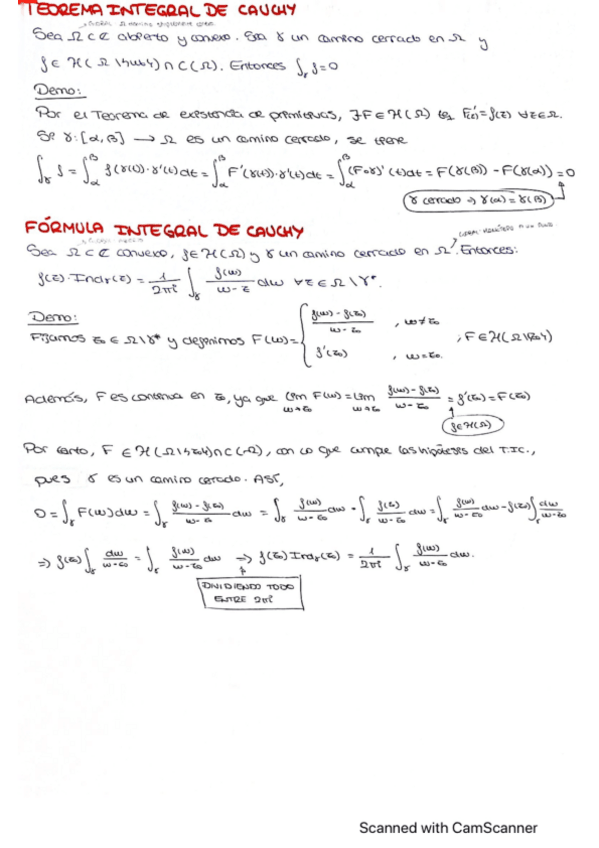 TEOREMA INTEGRAL DE CAUCHY
Sea Ω ⊂ ℂ abierto y convexo. Sea γ un camino cerrado en Ω y
f ∈ H(Ω\{ω0}) ∩ C(Ω). Entonces ∫_γ f = 0
Demo:
Por el Teorema de existencia de primitivas, ∃F ∈ H(Ω) tq F'(z) = f(z) ∀z ∈ Ω.
Si γ: [α, β] → Ω es un camino cerrado, se tiene
∫_γ f = ∫_α^β f(γ(t))·γ'(t)dt = ∫_α^β F'(γ(t))·γ'(t)dt = ∫_α^β (F∘γ)'(t)dt = F(γ(β)) - F(γ(α)) = 0
γ cerrado ⇒ γ(α) = γ(β)
FÓRMULA INTEGRAL DE CAUCHY
Sea Ω ⊂ ℂ convexo, f ∈ H(Ω) y γ un camino cerrado en Ω. Entonces:
f(z)·Ind_γ(z) = 1/2πi ∫_γ f(w)/(w-z) dw ∀z ∈ Ω\γ*.
Demo:
Fijamos z0 ∈ Ω\γ* y definimos F(w) = { (f(w)-f(z0))/(w-z0) , w≠z0 ; f'(z0) , w=z0. ; F ∈ H(Ω\{z0})
Además, F es continua en z0, ya que lim_{w→z0} F(w) = lim_{w→z0} (f(w)-f(z0))/(w-z0) = f'(z0) = F(z0)
f ∈ H(Ω)
Por tanto, F ∈ H(Ω\{z0}) ∩ C(Ω), con lo que cumple las hipóteses del T.I.C.,
pues γ es un camino cerrado. Así,
0 = ∫_γ F(w)dw = ∫_γ (f(w)-f(z0))/(w-z0) dw = ∫_γ f(w)/(w-z0) dw - ∫_γ f(z0)/(w-z0) dw = ∫_γ f(w)/(w-z0) dw - f(z0)∫_γ dw/(w-z0)
⇒ f(z0)∫_γ dw/(w-z0) = ∫_γ f(w)/(w-z0) dw ⇒ f(z0) Ind_γ(z0) = 1/2πi ∫_γ f(w)/(w-z0) dw.
DIVIDIENDO TODO
ENTRE 2πi
Scanned with CamScanner